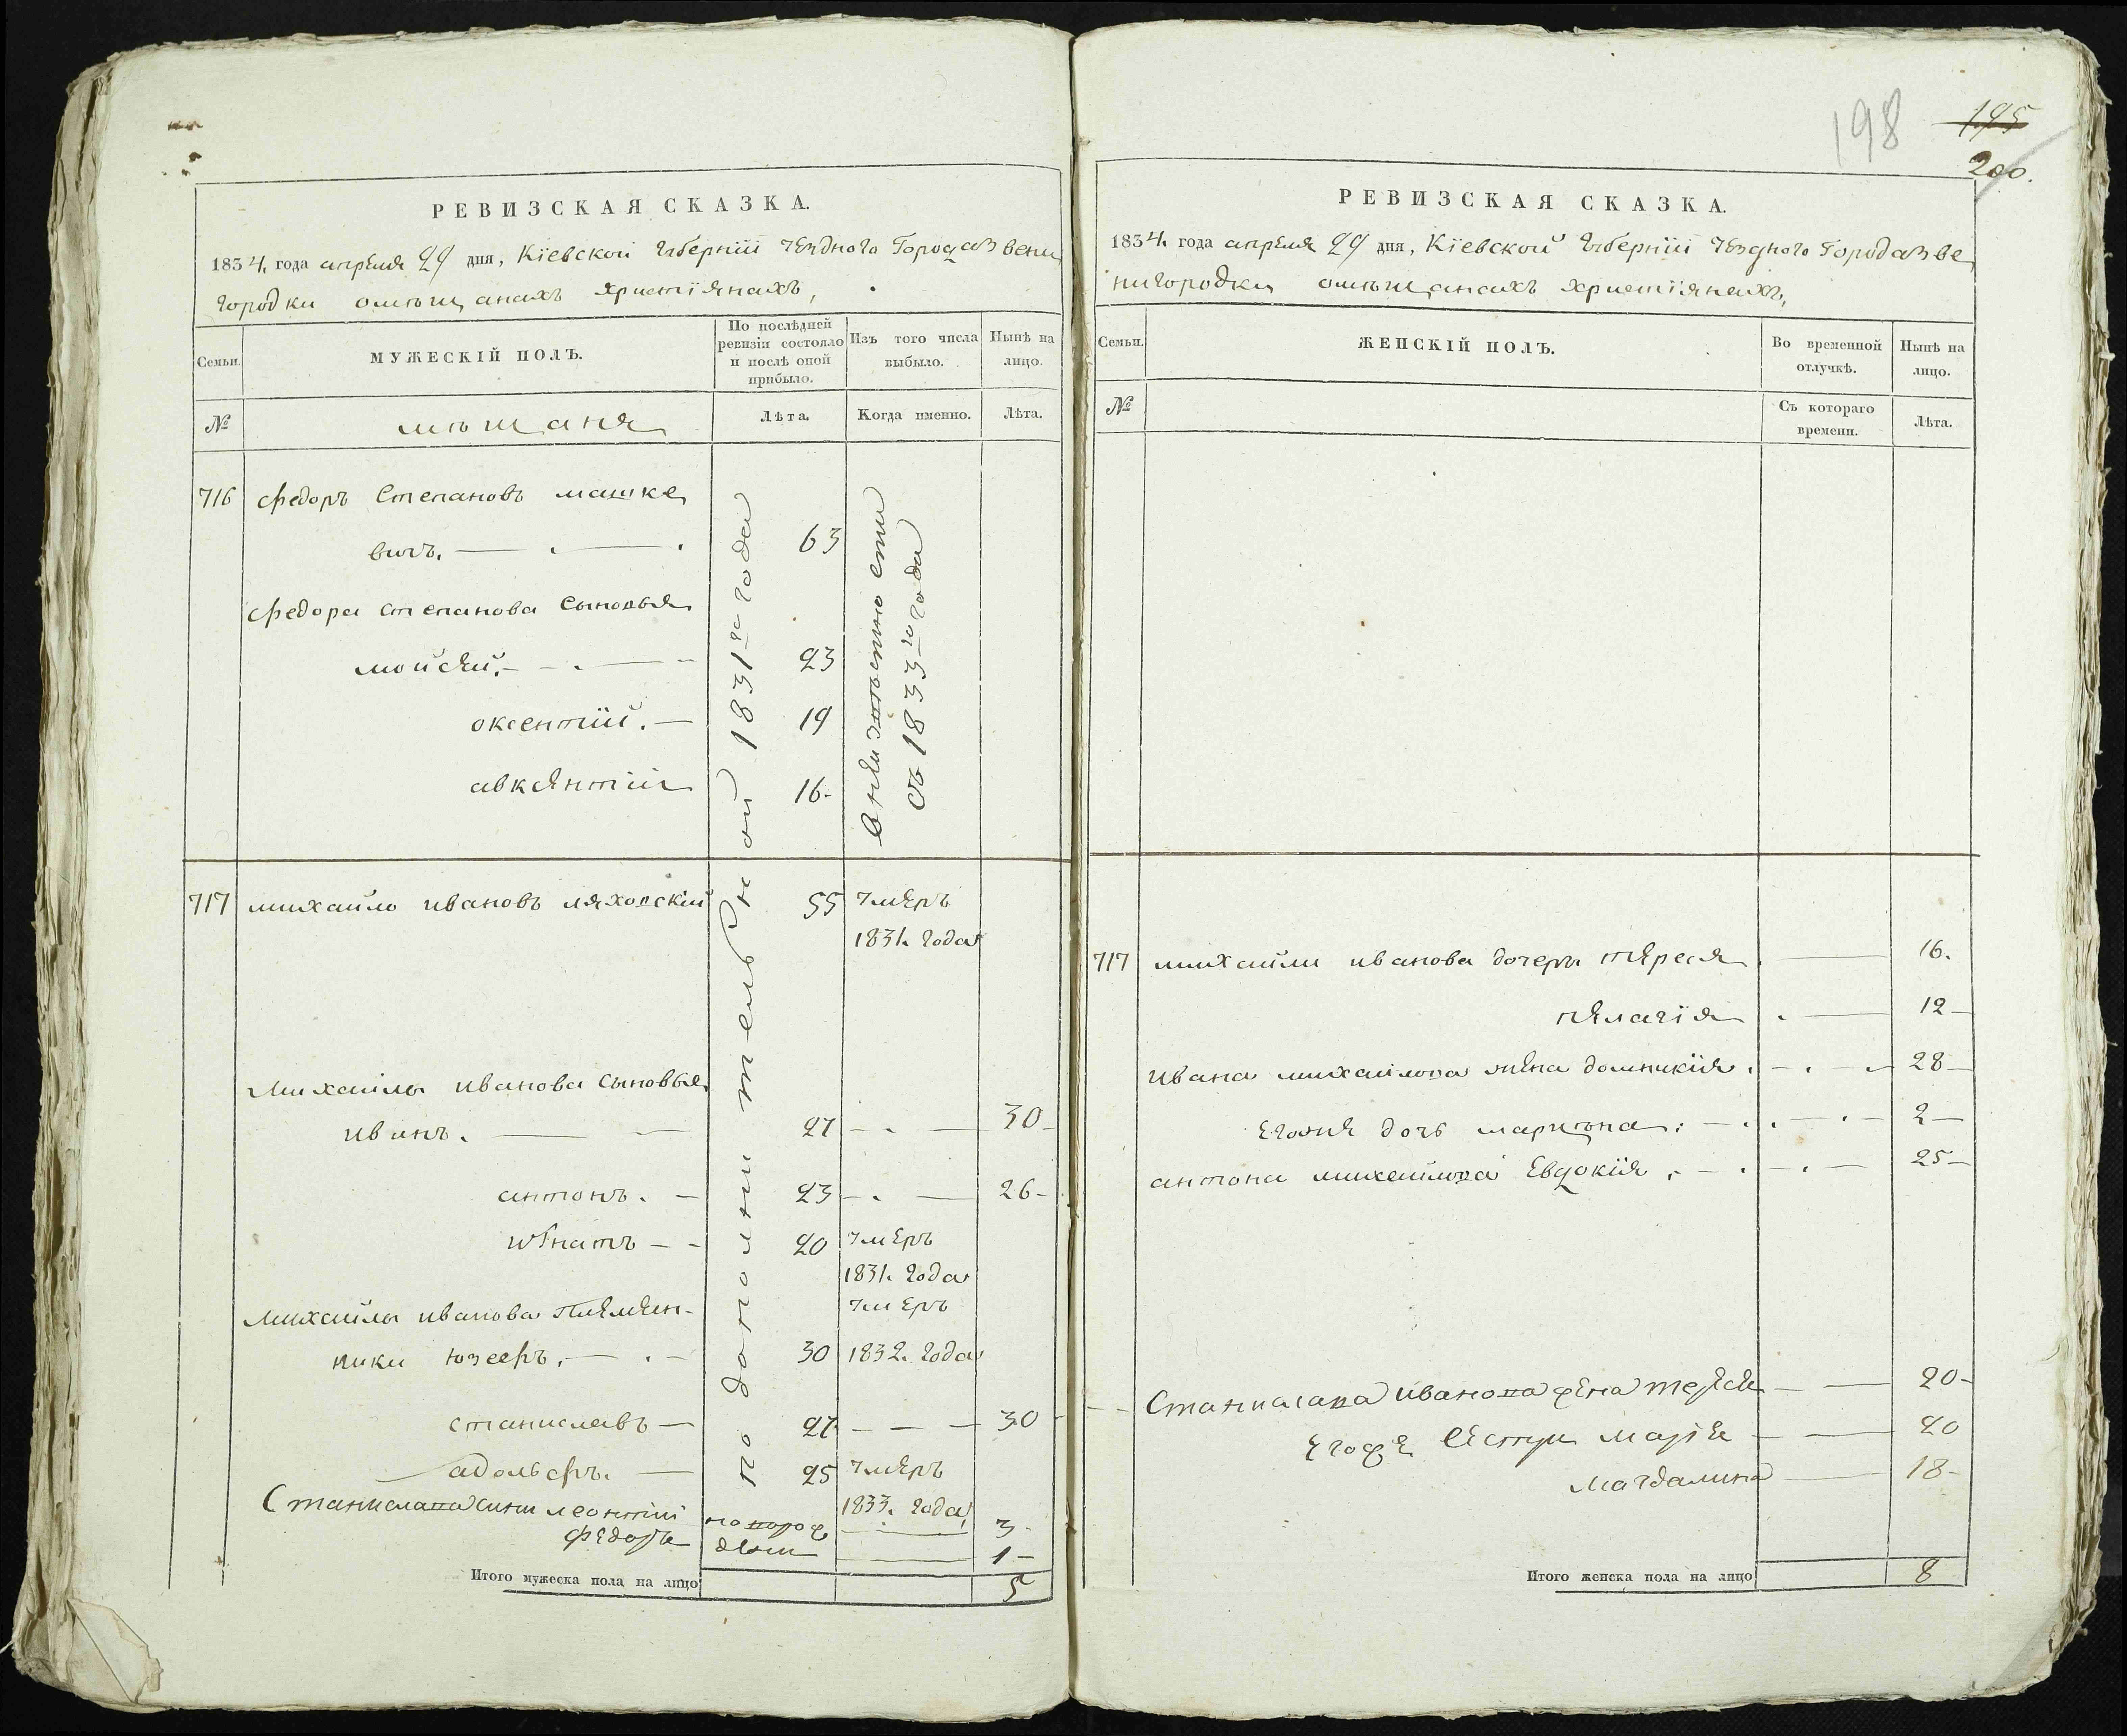 РЕВИЗСКАЯ СКАЗКА.
1834. года апреля 29 дня, Кіевской Губерніи уездного Города Звени
городки омѣщанахъ христіянахъ,
Семьи.
МУЖЕСКІЙ ПОЛЪ.
По послѣдней ревизіи состояло и послѣ оной прибыло.
Изъ того числа выбыло.
Нынѣ на лицо.
№
мѣщаня
Лѣта.
Когда именно.
Лѣта.
по дополнительной 1831-го года
716 Федоръ Степановъ машке
вичъ. 63
Федора степанова сыновья
мойсей. 23
оксентій. 19
авксентій 16
съ 1833-го года
717 михайло ивановъ ляховскій 55 умеръ
1831. года
Михайлы иванова сыновья
иванъ. 27 30
антонъ. 23 26
игнатъ 20 умеръ
1831. года
Михайлы иванова племен-
ники юзефъ. 30 умеръ 1832. года
станиславъ 27 30
адольфъ. 25 умеръ
1833. года
Станислава сини леонтій 3
Федоръ 1
Итого мужеска пола на лицо 5
198
195
200.
РЕВИЗСКАЯ СКАЗКА.
1834. года апреля 29 дня, Кіевской Губерніи уездного Города Зве
нигородки омѣщанахъ христіянахъ,
Семьи.
ЖЕНСКІЙ ПОЛЪ.
Во временной отлучкѣ.
Нынѣ на лицо.
№
Съ котораго времени.
Лѣта.
717 михайлы иванова дочеры тереся 16.
пелагія 12
ивана михайлова жена домникія. 28
егоже дочь марцъна. 2
антона михайлова Евдокія. 25
Станислава иванова жена тереся 20
Егоже сестри Марія 20
Магдалина 18
Итого женска пола на лицо 8